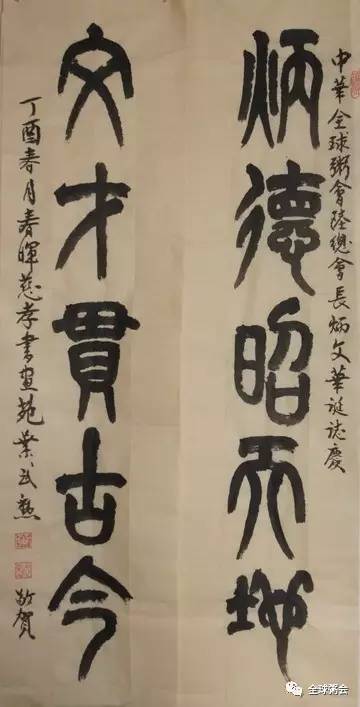 中華全球粥會陸總會長炳文華誕誌慶
炳德昭天地
文才貫古今
丁酉春月春暉慈孝書画苑業武
敬賀
全球粥会